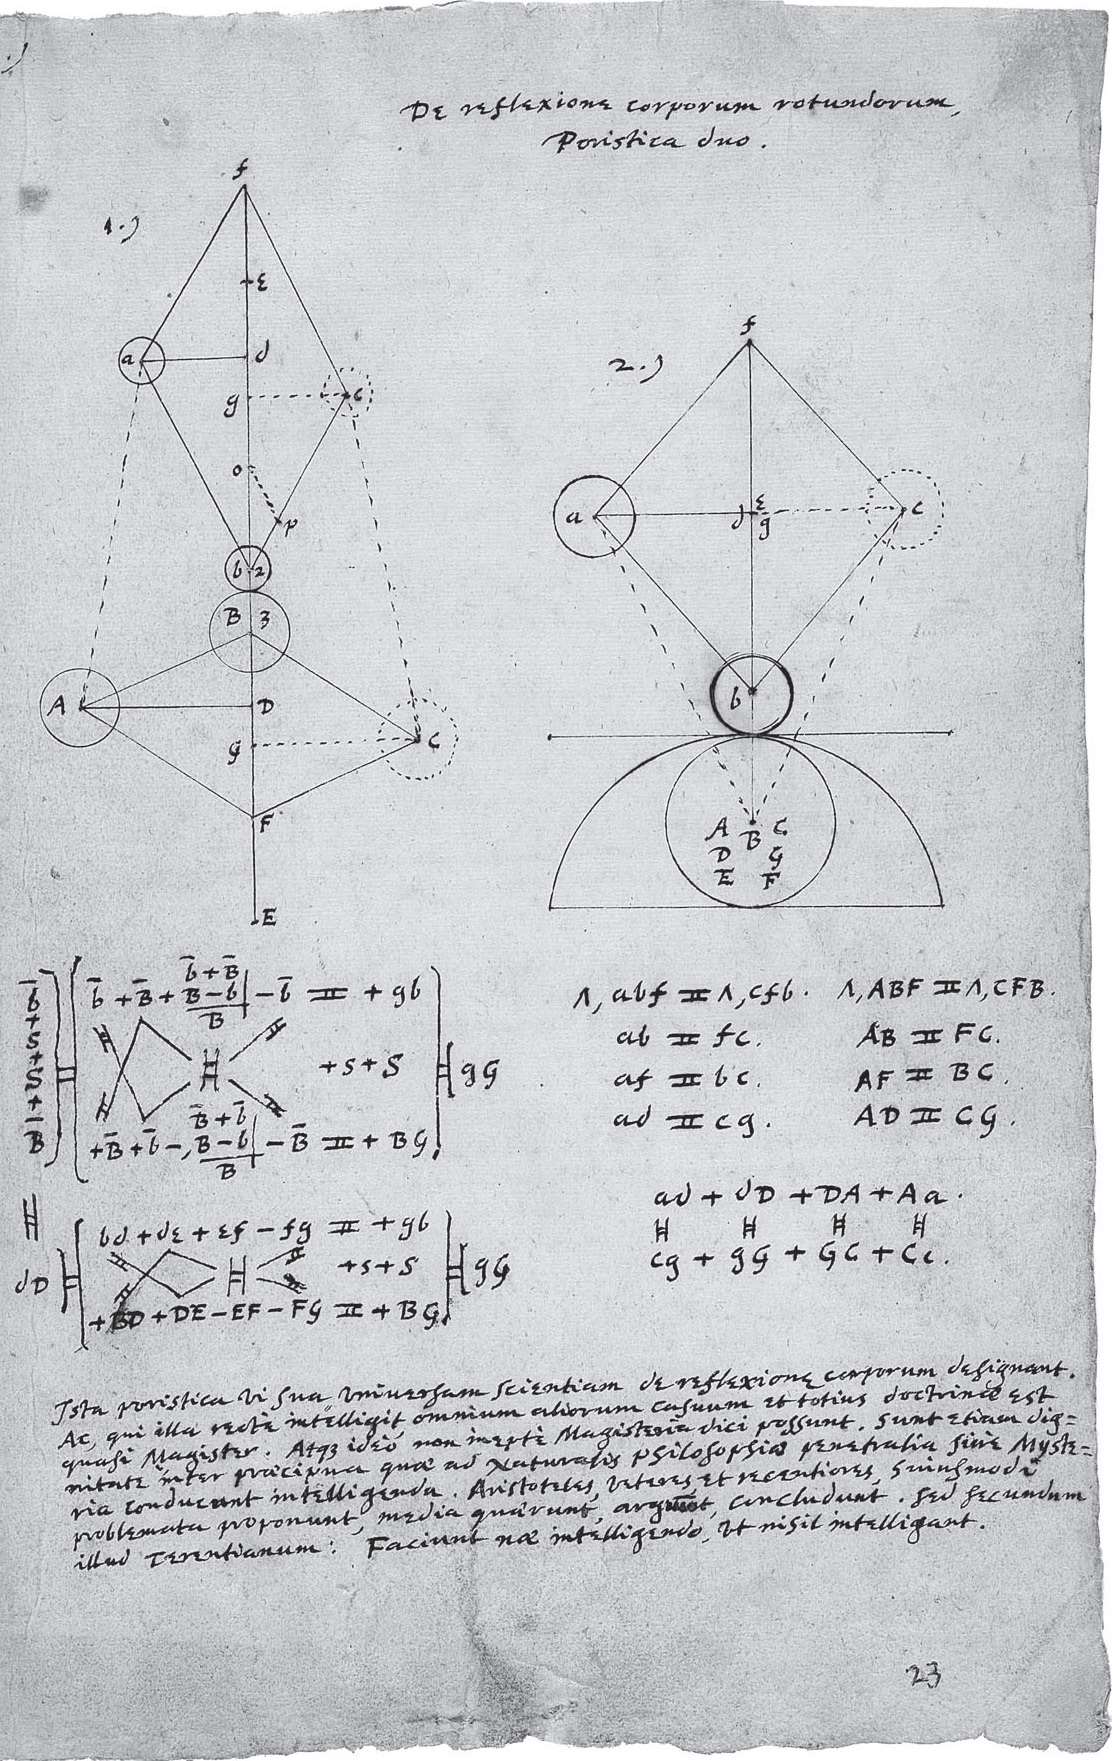 De reflexione corporum rotundorum,
Poristica duo.
1.)
f
ε
a
d
g
c
o
p
b 2
B 3
A
D
G
C
F
E
2.)
f
a
d ε
g
c
b
A B C
D G
E F
b̄ + B̄
b̄ + B̄ + B-b - b̄ = + gb
B
b̄+s+S+B̄
+s+S
gG
B̄+b̄
+B̄+b̄-, B-b - B̄ = + BG
B
bd + dε + εf - fg = + gb
dD
+s+S
gG
+BD + DE - EF - FG = + BG
Λ, abf = Λ, cfb. Λ, ABF = Λ, CFB.
ab = fc. AB = FC.
af = bc. AF = BC.
ad = cg. AD = CG.
ad + dD + DA + Aa.
cg + gG + GC + Cc.
Ista poristica vi sua universam scientiam de reflexione corporum designant.
Ac, qui illa recte intelligit, omnium aliorum casuum et totius doctrinæ est
quasi Magister. Atqꝫ ideò non ineptè Magisteria dici possunt. Sunt etiam dig=
nitate inter præcipua quæ ad Naturalis philosophiæ penetralia sive Myste=
ria conducunt intelligenda. Aristoteles, veteres et recentiores, huiusmodi
problemata proponunt, media quærunt, arguunt, concludunt. Sed secundum
illud Terentianum: Faciunt næ intelligendo, ut nihil intelligant.
23